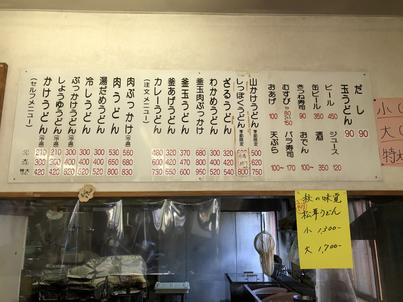 だし
玉うどん 90 90
ビール 450
缶ビール 350
きつね寿司 90
むすび 90
おあげ 100
ジュース 120
酒 350
おでん 120
バラ寿司
天ぷら 100〜170
山かけうどん 500 750
しっぽくうどん
ざるうどん 320 540
わかめうどん 400 520
釜玉肉ぶっかけ 680 900
釜玉うどん 370 600
釜あげうどん 320 550
カレーうどん 480 730
(注文メニュー)
肉ぶっかけ 560 680 830
肉うどん 530 660 800
湯だめうどん 300
冷しうどん 300
ぶっかけうどん 300
しょうゆうどん 210 300 420
かけうどん 210 300 420
(セルフメニュー)
小
大
特大
小(
大(
特大
秋の味覚
松茸うどん
小 1,300-
大 1,700-